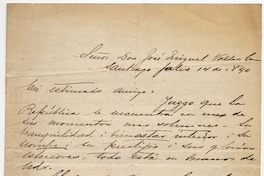 Señor Don José Miguel Valdes C.
Santiago Julio 14 de 1890
Mi estimado amigo:
Juzgo que la
República se encuentra en uno de
los momentos mas solemnes: su
tranquilidad i bienestar interior i su
i su prestijio i sus glorias
esteriores, todo está en manos de
Uds.